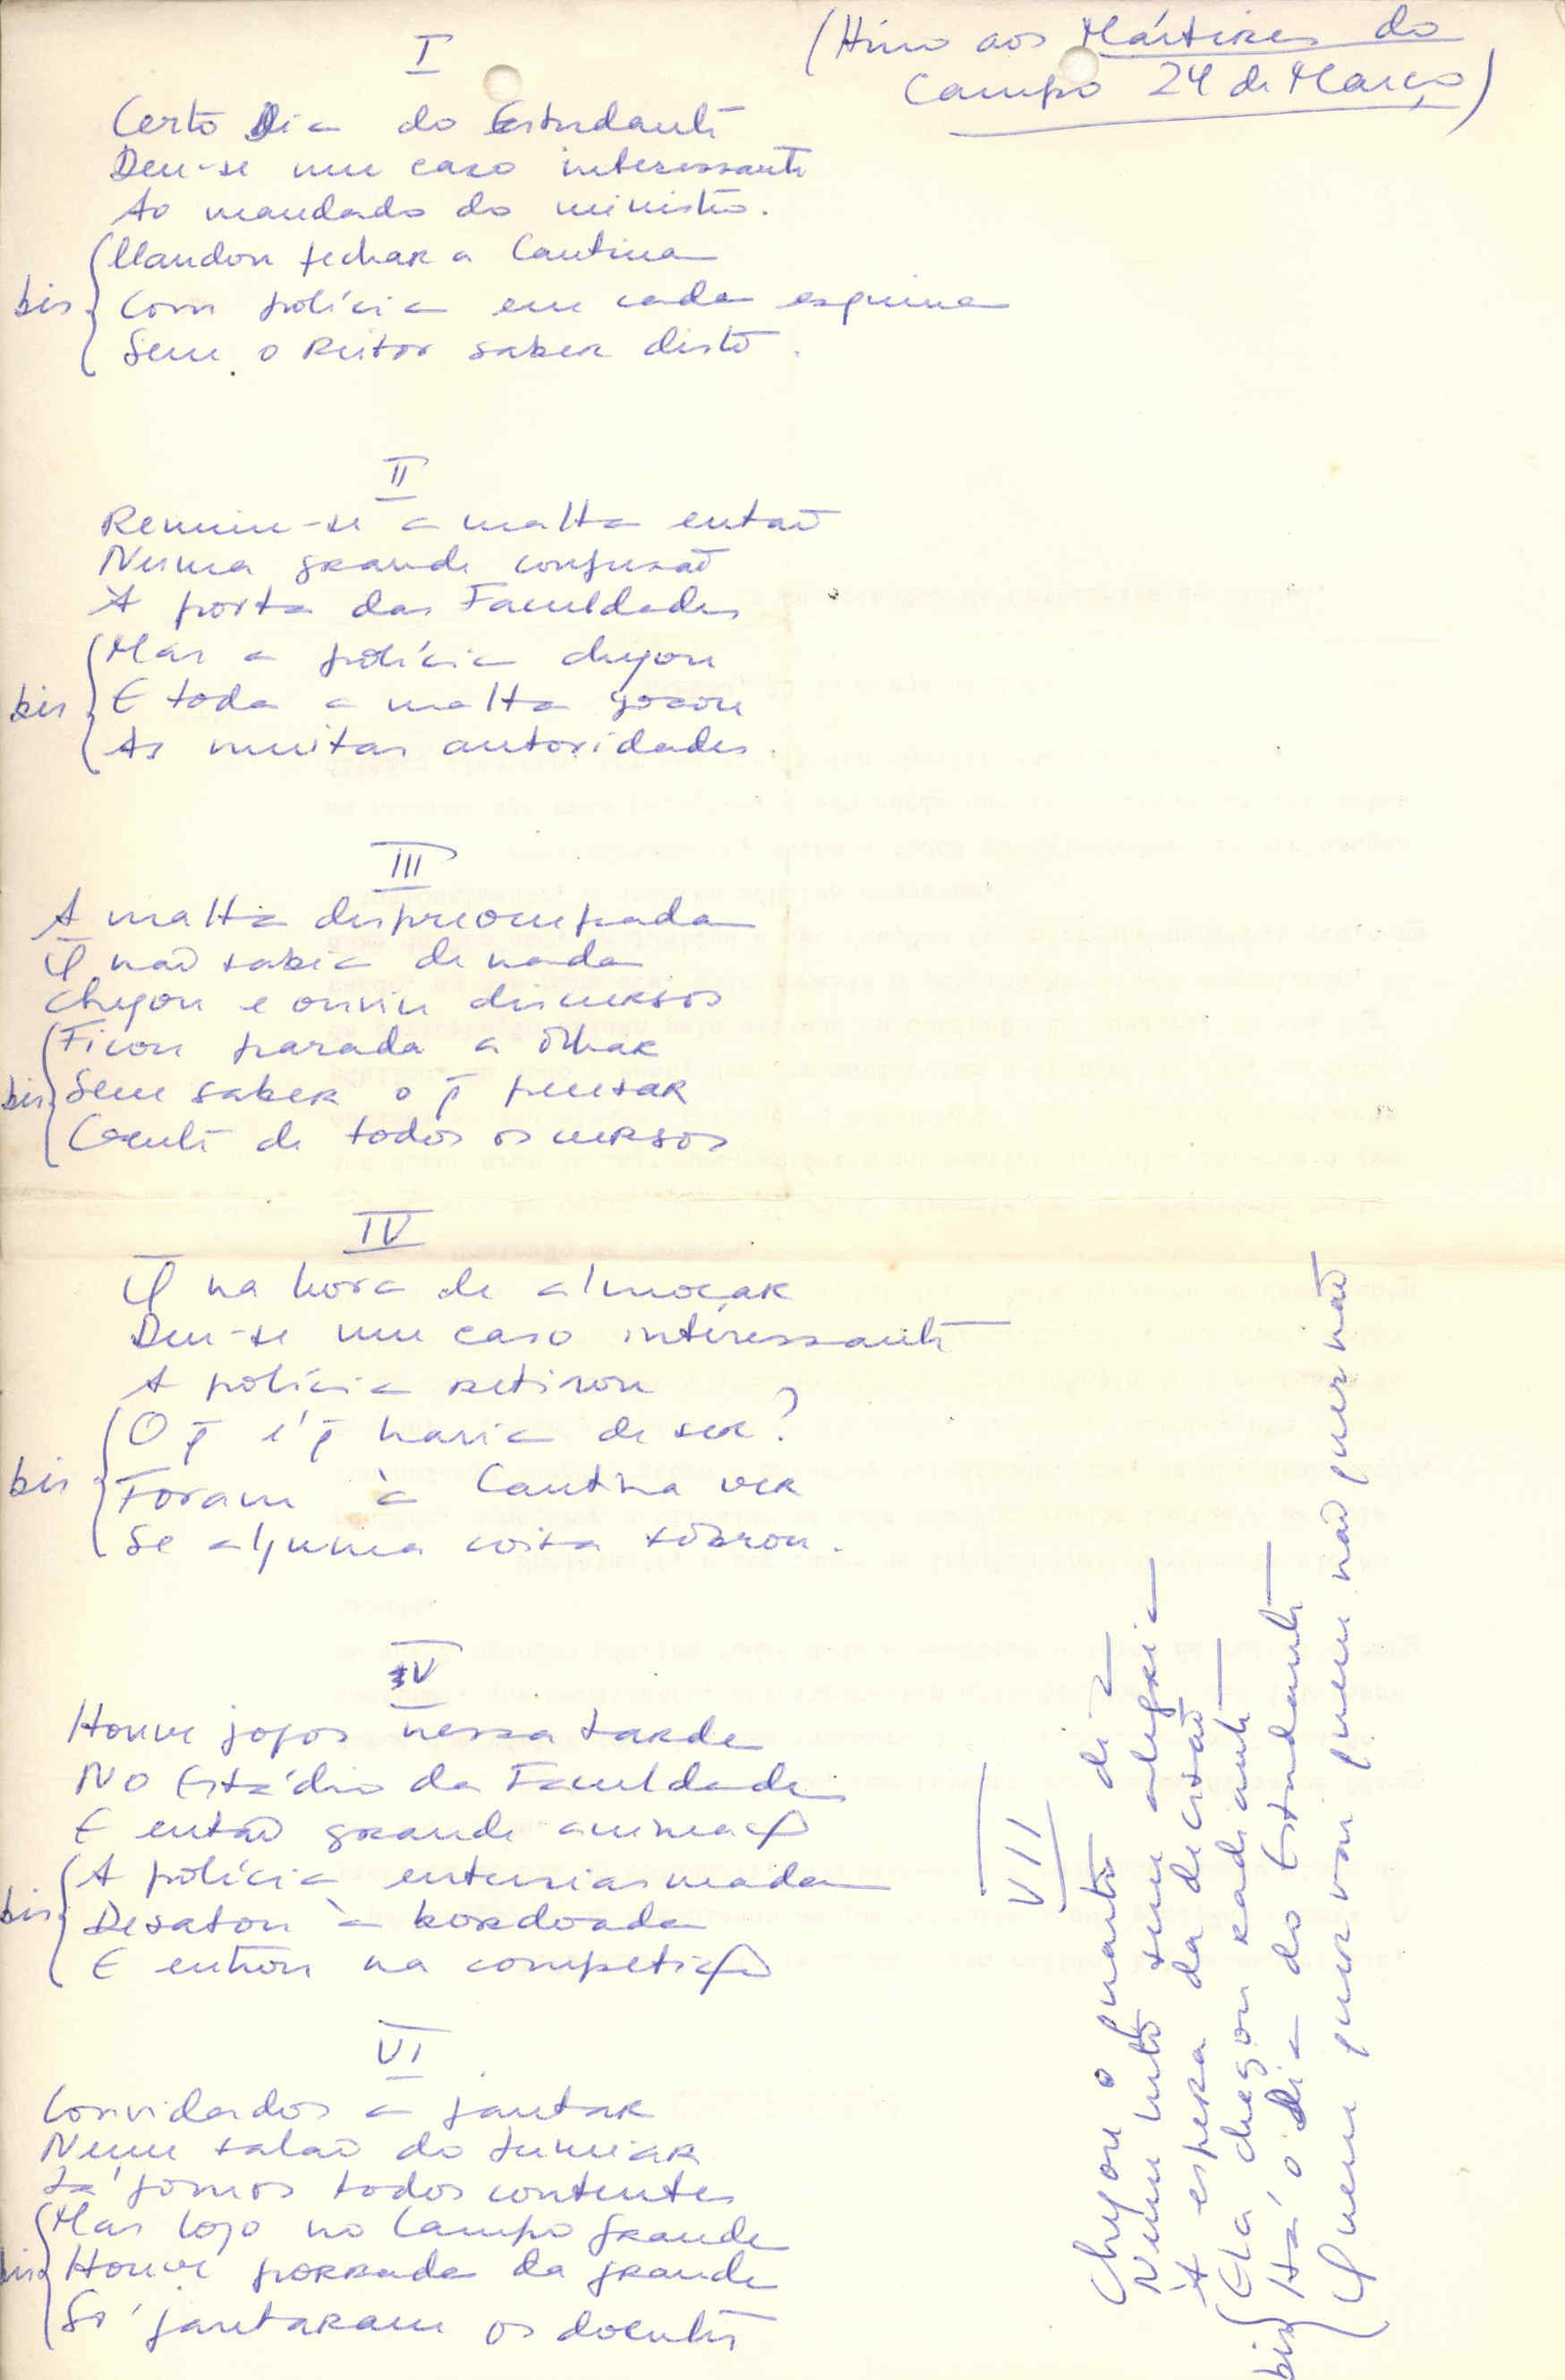 (Hino aos Mártires do
Campo 24 de Março)
I
Certo Dia do Estudante
Deu-se um caso interessante
Ao mandado do ministro.
bis
Mandou fechar a Cantina
Com polícia em cada esquina
Sem o Reitor saber disto.
II
Reuniu-se a malta então
Numa grande confusão
À porta das Faculdades
bis
Mas a polícia chegou
E toda a malta gozou
As muitas autoridades.
III
A malta despreocupada
Q̄ não sabia de nada
Chegou e ouviu discursos
bis
Ficou parada a olhar
Sem saber o q̄ pensar
Gente de todos os cursos
IV
Q̄ na hora de almoçar
Deu-se um caso interessante
A polícia retirou
bis
O q̄ é q̄ havia de ser?
Foram à Cantina ver
Se alguma coisa sobrou.
V
Houve jogos nessa tarde
No Estádio da Faculdade
E então grande animação
bis
A polícia entusiasmada
Desatou à bordoada
E entrou na competição
VI
Convidados a jantar
Num salão do lumiar
Lá fomos todos contentes
bis
Mas logo no Campo grande
Houve porrada da grande
Só jantaram os doentes
VII
Chegou o quarto dia
Num luto sem alegria
À espera da decisão
bis
Ela chegou radiante
Há o Dia do Estudante
Quem quer vai quem não quer não